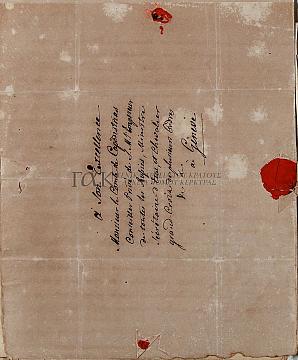 A Son Excellence
Monsieur le Comte de Capodistrias
Conseiller Privé de S. M. l'Empereur
de toutes les Russies, Ministre
Secrétaire d'Etat, et Chevalier
grand Croix de plusieurs Ordres
&
à Genève
ΓΑΚ
ΚΡΑΤΟΥΣ
ΚΕΡΚΥΡΑΣ